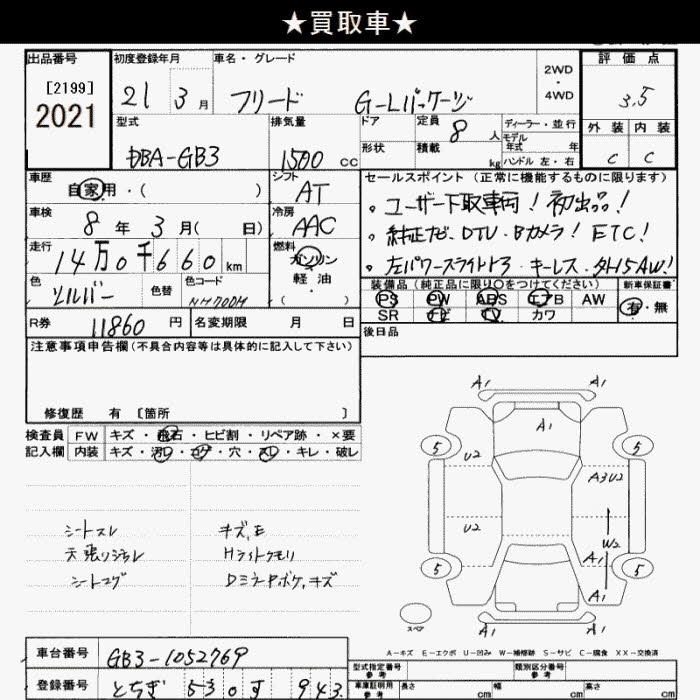 ★買取車★
出品番号 初度登録年月 車名・グレード 2WD・4WD 評価点
[2199]
2021
21 3月 フリード G-Lパッケージ 3.5
型式 排気量 ドア 定員 8人 ディーラー・並行
モデル年式 年
外装 内装
DBA-GB3 1500cc 形状 積載 kg ハンドル 左・右 C C
車歴 自家用・( ) シフト AT
セールスポイント(正常に機能するものに限ります)
。ユーザー下取車両!初出品!
車検 8年 3月( 日) 冷房 AAC
。純正ナビ、DTV・Bカメラ!ETC!
走行 14万0千660km 燃料 ガソリン・軽油・( )
。左パワースライドドア・キーレス・外15AW!
色 シルバー 色替 色コード NH700M
装備品(純正品に限り○をつけてください) 新車保証書
PS PW ABS エアB AW 有・無
SR ナビ TV カワ
R券 11860円 名変期限 月 日
後日品
注意事項申告欄(不具合内容等は具体的に記入して下さい)
修復歴 有 [箇所 ]
検査員記入欄 FW キズ・飛石・ヒビ割・リペア跡・×要
内装 キズ・汚レ・コゲ・穴・スレ・キレ・破レ
シートスレ キズ、E
天張リシミ Hライトクモリ
シートコゲ Dミラーボケ、キズ
A1 A1
A1
5 5
U2 A3U2
U2 W2
A1
5 5
A1
スペア A1 A1
A-キズ E-エクボ U-凹み W-補修跡 S-サビ C-腐食 XX-交換済
車台番号 GB3-1052769
型式指定番号 参考 類別区分番号 参考
登録番号 とちぎ 530 す 943
車庫証明用 参考 長さ cm 幅 cm 高さ cm